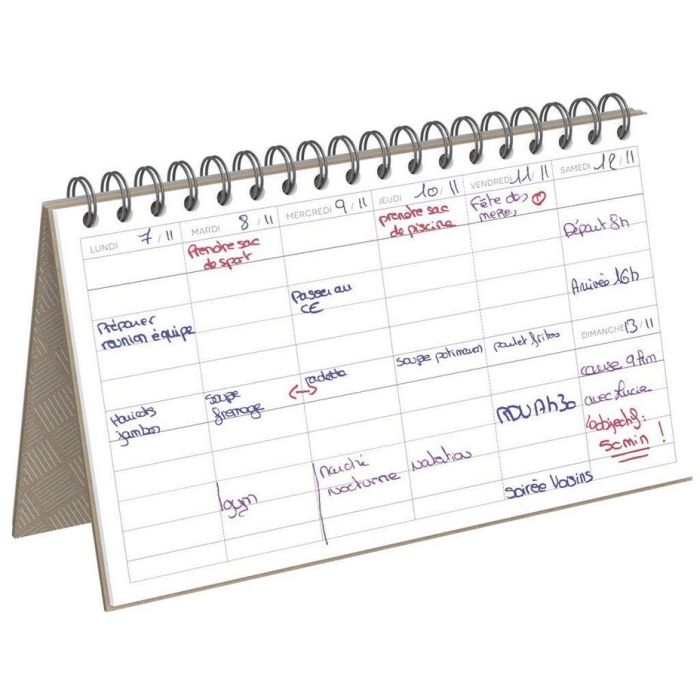 LUNDI 7/11
Préparer
réunion équipe
Haricots
jambon
MARDI 8/11
Prendre sac
de sport
soupe
fromage
gym
MERCREDI 9/11
Passer au
CE
raclette
marché
nocturne
JEUDI 10/11
prendre sac
de piscine
soupe potimarron
natation
VENDREDI 11/11
Fête des
mères
poulet frites
RDV 17h30
soirée Voisins
SAMEDI 12/11
Départ 8h
Arrivée 16h
DIMANCHE 13/11
course 9km
avec Lucie
objectif:
50min!